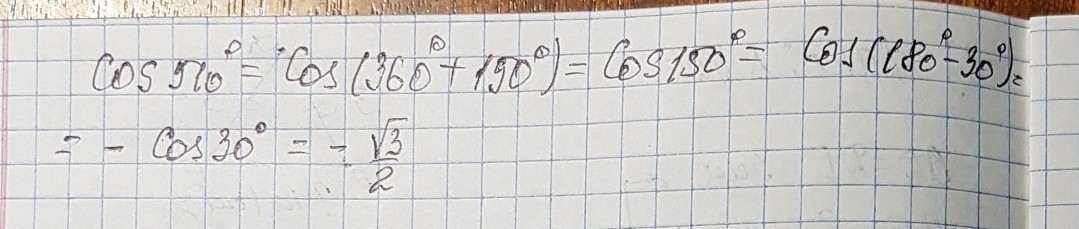 cos 510° = cos (360° + 150°) = cos 150° = cos (180° - 30°) =
= - cos 30° = - √3/2